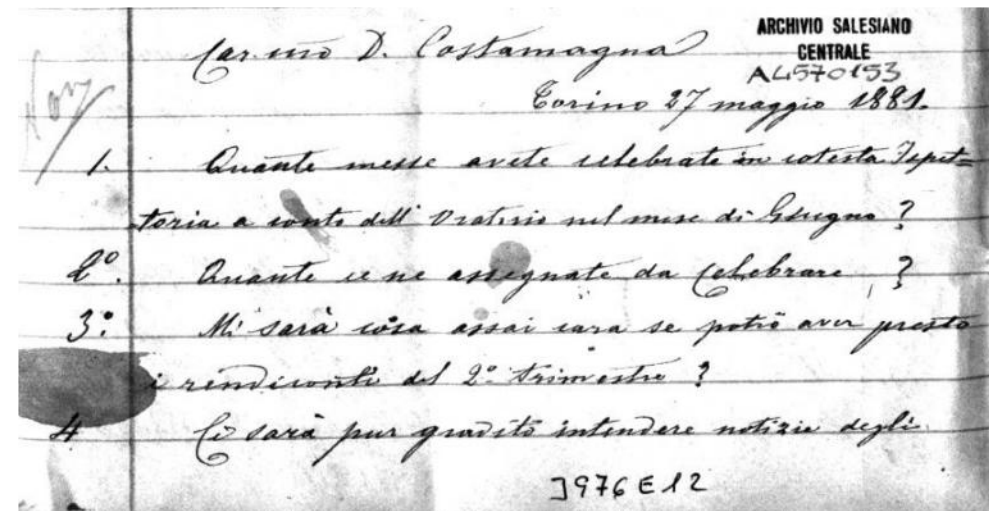 ARCHIVIO SALESIANO
CENTRALE
A4570153
Car.mo D. Costamagna
Torino 27 maggio 1881.
1. Quante messe avete celebrate in cotesta Ispet=
toria a conto dell' Oratorio nel mese di Giugno ?
2º. Quante ce ne assegnate da celebrare ?
3º. Mi sarà cosa assai cara se potrò aver presto
i rendiconti del 2º trimestre ?
4 Ci sarà pur gradito intendere notizie degli
J976E12